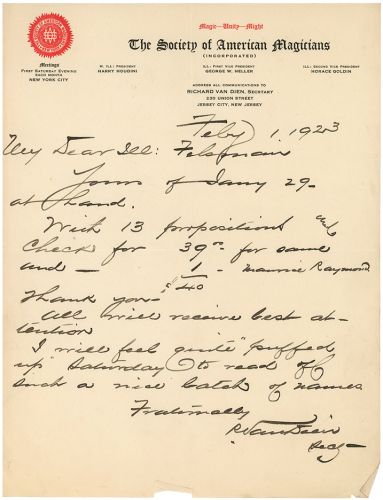 Magic—Unity—Might
The Society of American Magicians
(INCORPORATED)
Meetings
First Saturday Evening
Each Month
New York City
M. Ill: President
Harry Houdini
Ill: First Vice President
George W. Heller
Ill: Second Vice President
Horace Goldin
Address all communications to
Richard Van Dien, Secretary
230 Union Street
Jersey City, New Jersey
Feby 1, 1923
My Dear Ill: Felsman
Yours of Jany 29—
at hand.
With 13 propositions and
Check for 39.00 for same
and — 1 — Maurice Raymond
$40
Thank you—
All will receive best at-
tention
I will feel quite "puffed
up" Saturday to read off
such a nice batch of names
Fraternally
R Van Dien
Secy—